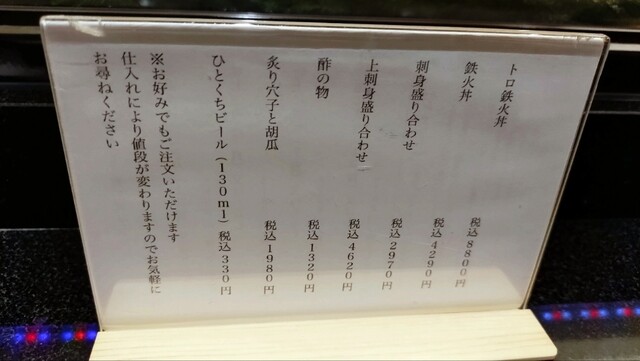 トロ鉄火丼 税込8800円
鉄火丼 税込4290円
刺身盛り合わせ 税込2970円
上刺身盛り合わせ 税込4620円
酢の物 税込1320円
炙り穴子と胡瓜 税込1980円
ひとくちビール(130ml) 税込330円
※お好みでもご注文いただけます
仕入れにより値段が変わりますのでお気軽に
お尋ねください